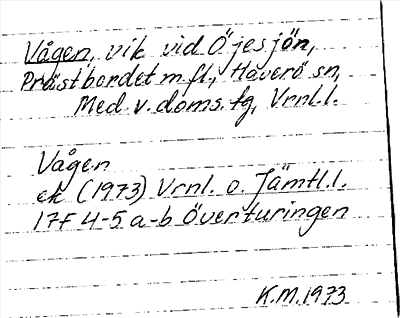 Vågen, vik vid Öjesjön,
Prästbordet m.fl., Haverö sn,
Med. v. doms. tg, Vrnl.l.
Vågen
ek (1973) Vrnl. o. Jämtl.l.
17F 4-5 a-b Överturingen
K.M. 1973